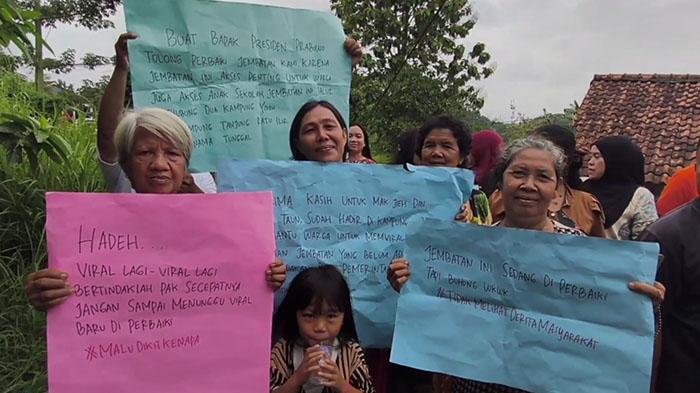 BUAT BAPAK PRESIDEN PRABOWO
TOLONG PERBAIKI JEMBATAN KAMI KARENA
JEMBATAN INI AKSES PENTING UNTUK WARGA
JUGA AKSES ANAK SEKOLAH JEMBATAN INI JALUR
DUA KAMPUNG YGN
TANJUNG RATU ILIR
TUNGGAL
KASIH UNTUK MAK JEH DAN
TAUN, SUDAH HADIR DI KAMPUNG
WARGA UNTUK MEMVIRAL
JEMBATAN YONG BELUM ADA
PEMERINTAH
HADEH....
VIRAL LAGI-VIRAL LAGI
BERTINDAKLAH PAK SECEPATNYA
JANGAN SAMPAI MENUNGGU VIRAL
BARU DI PERBAIKI
#MALUDIKITKENAPA
JEMBATAN INI SEDANG DI PERBAIKI
TAPI BOHONG WKWK
#TIDAK MELIHAT DERITA MASYARAKAT